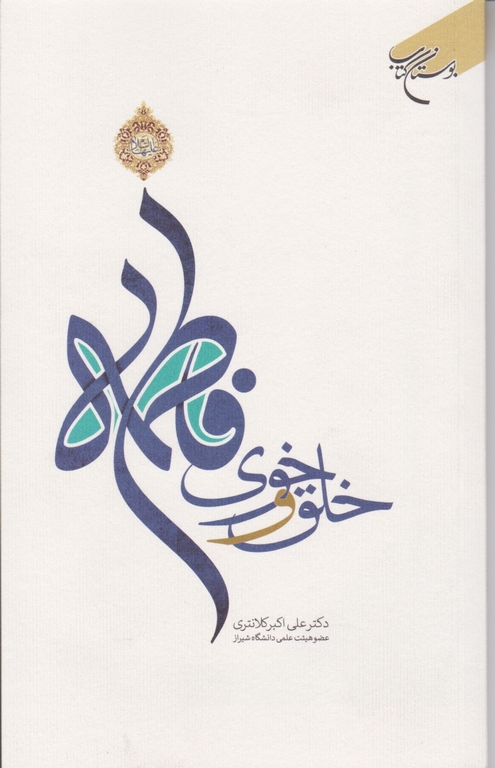 بوستان کتاب
علیهاالسلام
خلق و خوی
فاطمه
دکتر علی اکبر کلانتری
عضو هیئت علمی دانشگاه شیراز